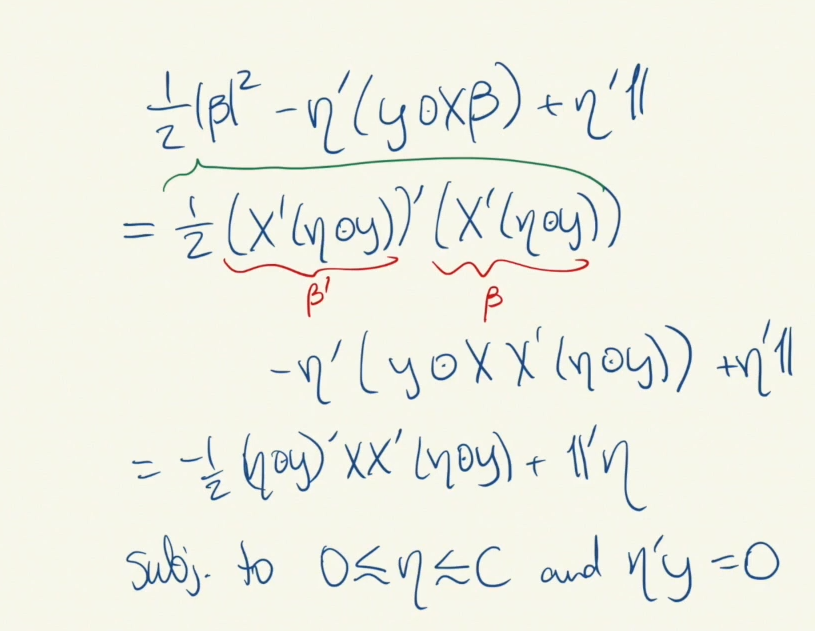 ½|β|² − η′(y⊙Xβ) + η′𝟙
= ½(X′(η⊙y))′(X′(η⊙y))
β′ β
−η′(y⊙XX′(η⊙y)) + η′𝟙
= −½(η⊙y)′XX′(η⊙y) + 𝟙′η
subj. to 0≤η≤C and η′y=0